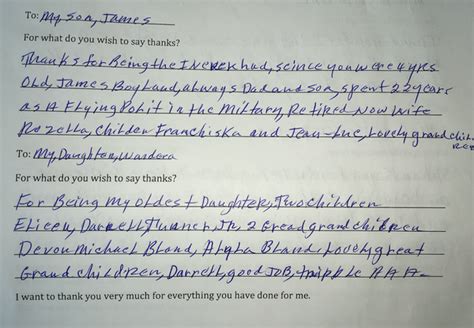 To: My Son, James
For what do you wish to say thanks?
Thanks for Being the I Never had, scince you were 4 yrs
Old, James Boyland, always Dad and son, spent 22 years
as A Flying in the Military, Retired Now Wife
Rozella, Childen Franchiska and Jean-Luc, Lovely grand chil-
ren
To: My Daughter, Wandora
For what do you wish to say thanks?
For Being My Oldest Daughter, Two children
Elicen, Darrell Turner, Jr, 2 Gread grand children
Devon Michael Bland, Bland, Lovely great
Grand children, Darrell, good JOB, tripple AAA-
I want to thank you very much for everything you have done for me.